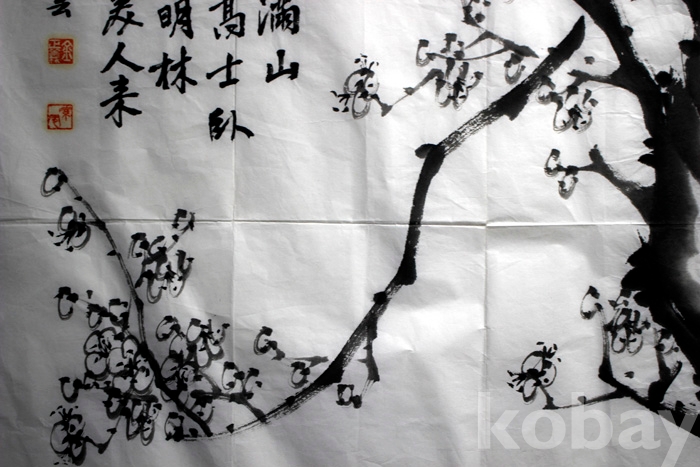 滿山
高士臥
明林
美人来
kobay